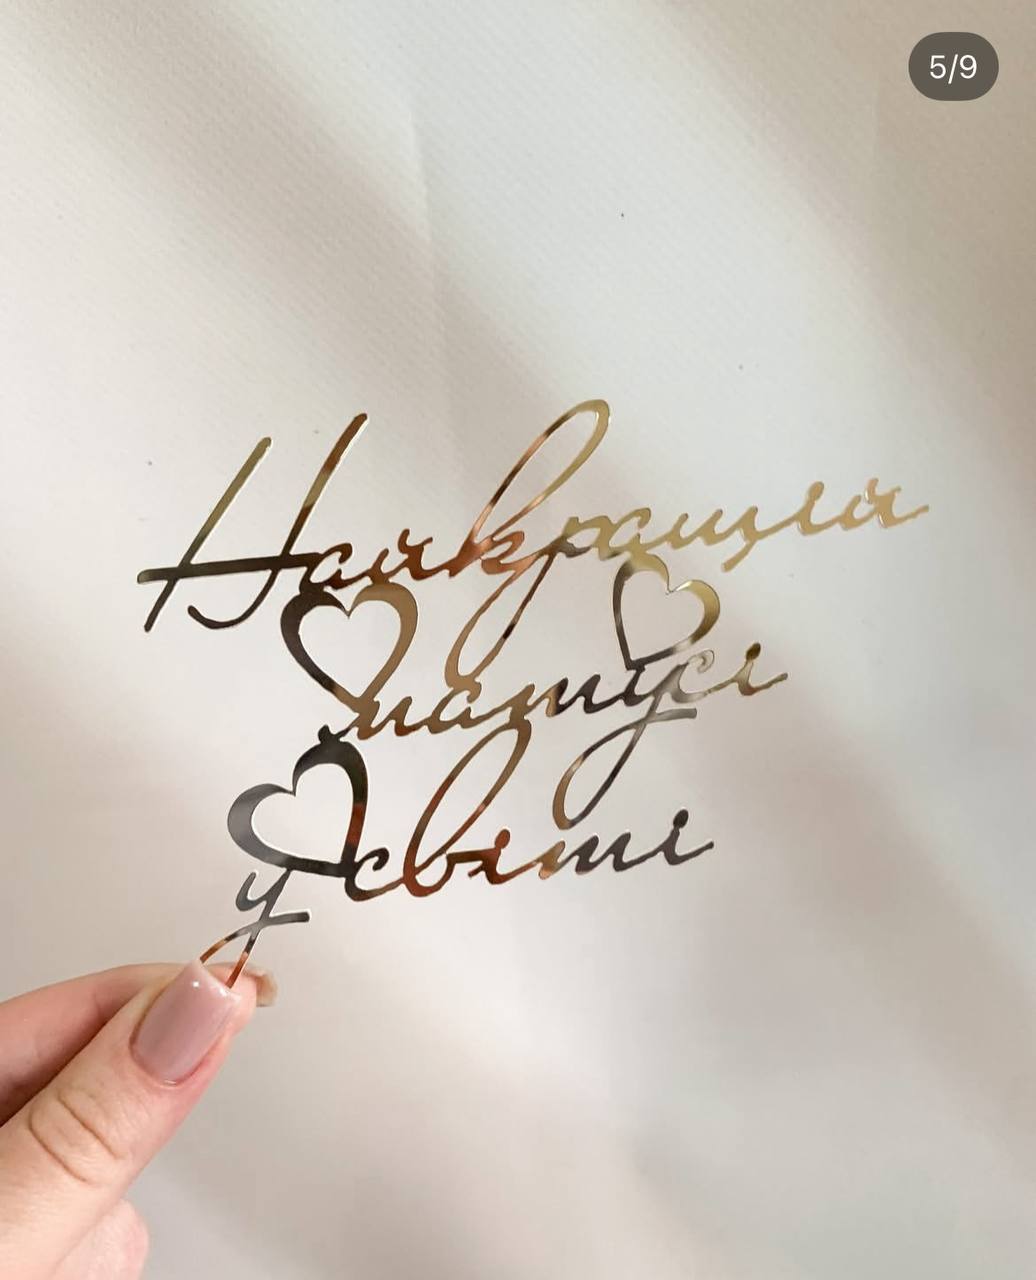 5/9
Найкращій
матусі
у світі